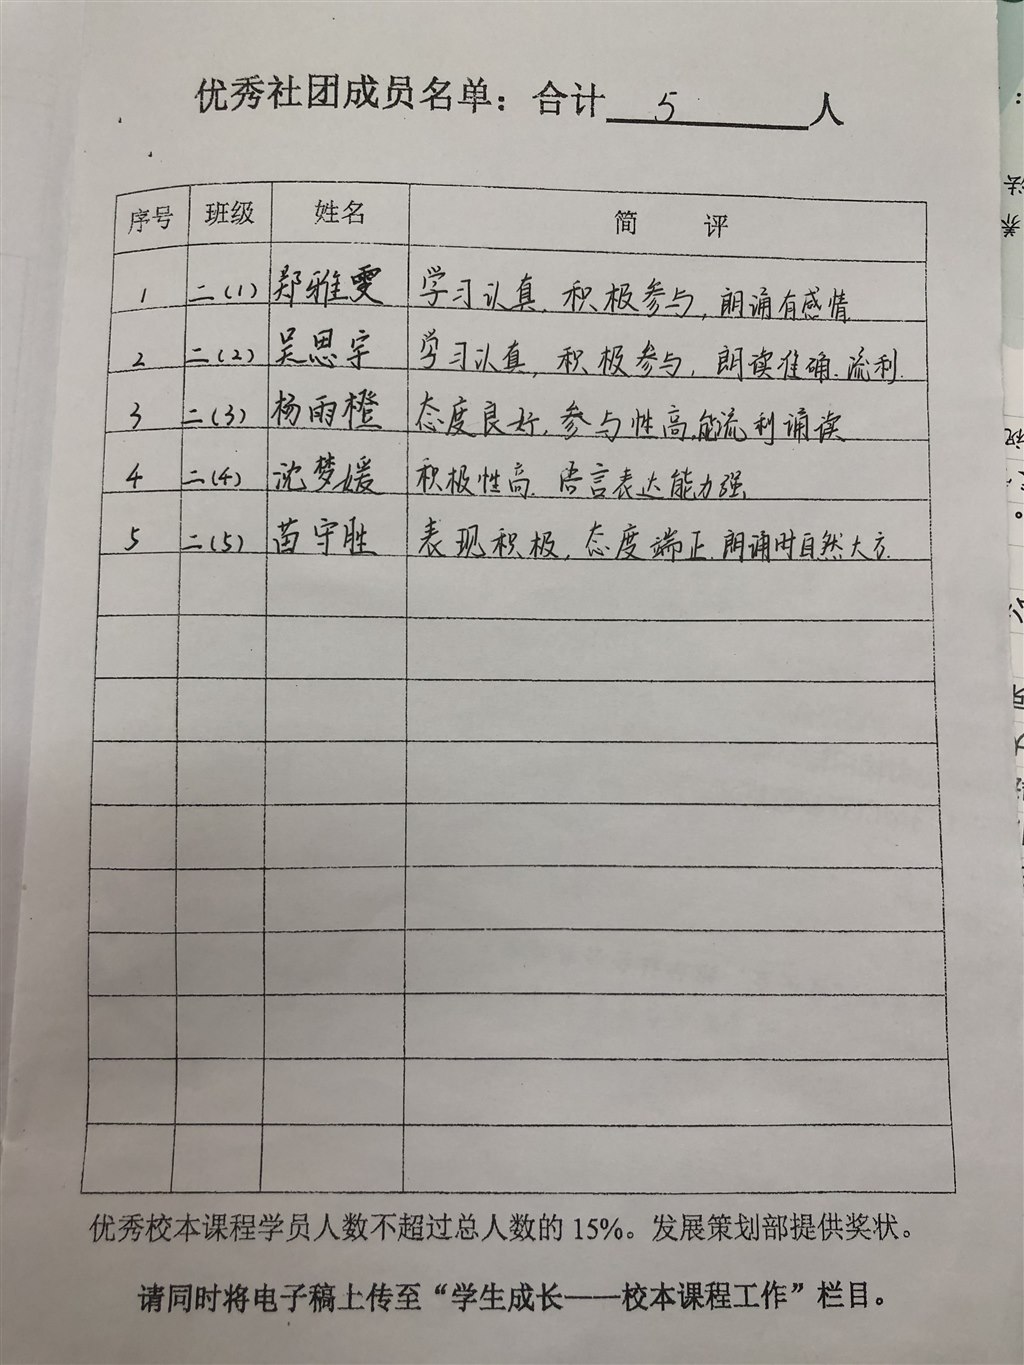 优秀社团成员名单：合计 5 人
序号 班级 姓名 简 评
1 二(1) 郑雅雯 学习认真，积极参与，朗诵有感情
2 二(2) 吴思宇 学习认真，积极参与，朗读准确.流利.
3 二(3) 杨雨橙 态度良好，参与性高，能流利诵读
4 二(4) 沈梦媛 积极性高.语言表达能力强
5 二(5) 苗守胜 表现积极，态度端正.朗诵时自然大方.
优秀校本课程学员人数不超过总人数的 15%。发展策划部提供奖状。
请同时将电子稿上传至“学生成长——校本课程工作”栏目。